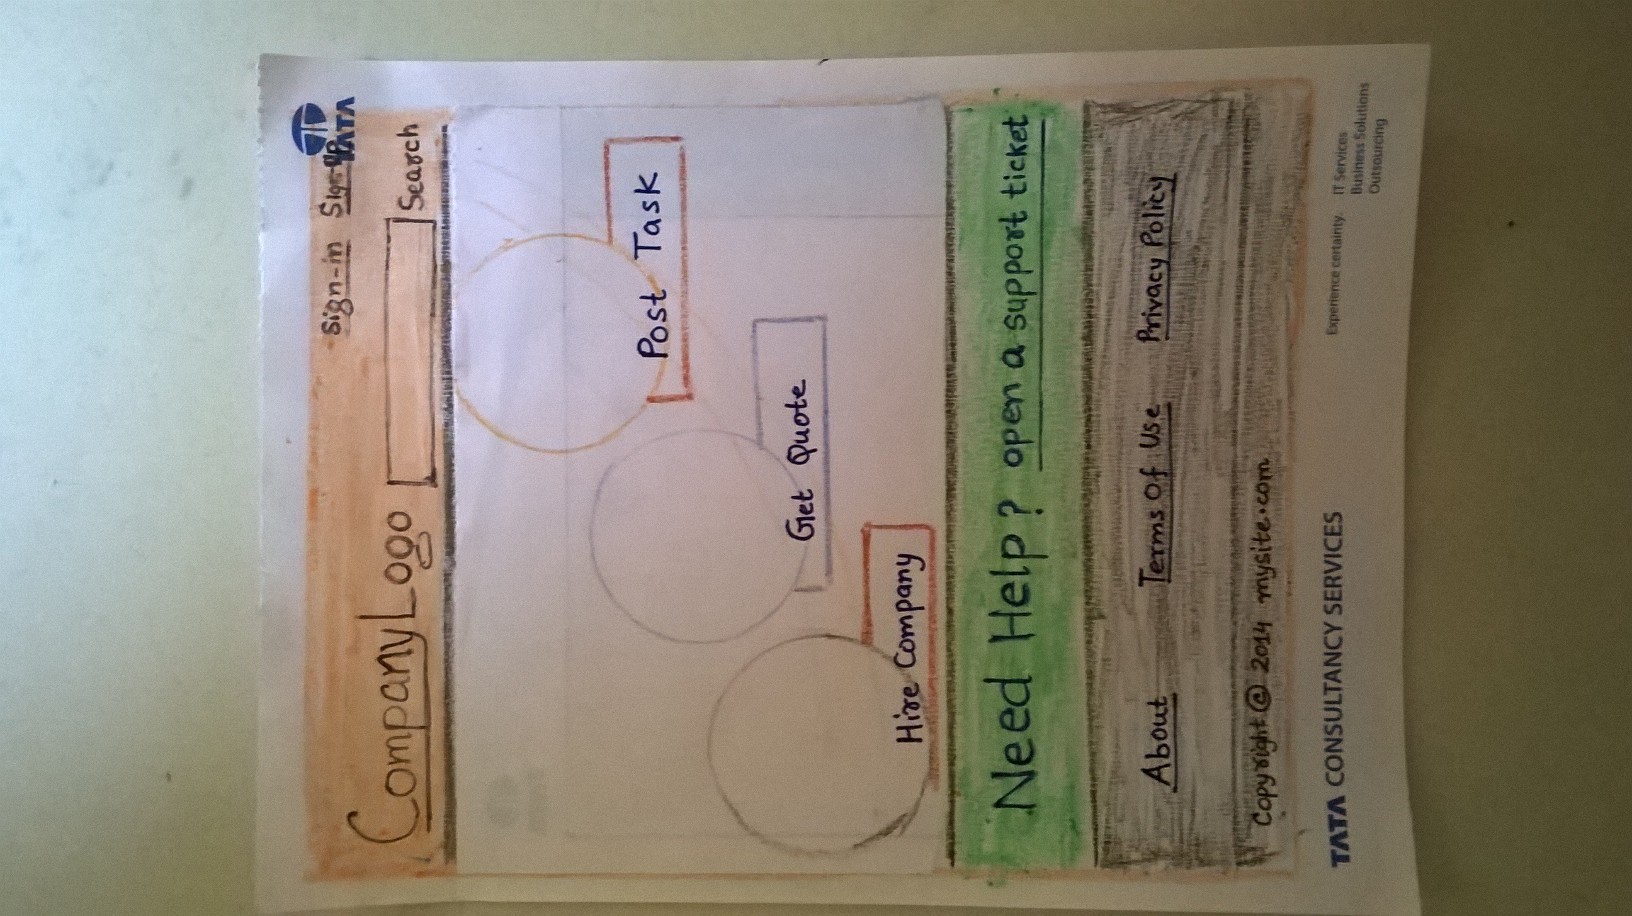 TATA
Sign-in Sign-up
CompanyLogo Search
Post Task
Get Quote
Hire Company
Need Help? open a support ticket
About Terms Of Use Privacy Policy
Copyright @ 2014 mysite.com
TATA CONSULTANCY SERVICES
Experience certainty.
IT Services
Business Solutions
Outsourcing